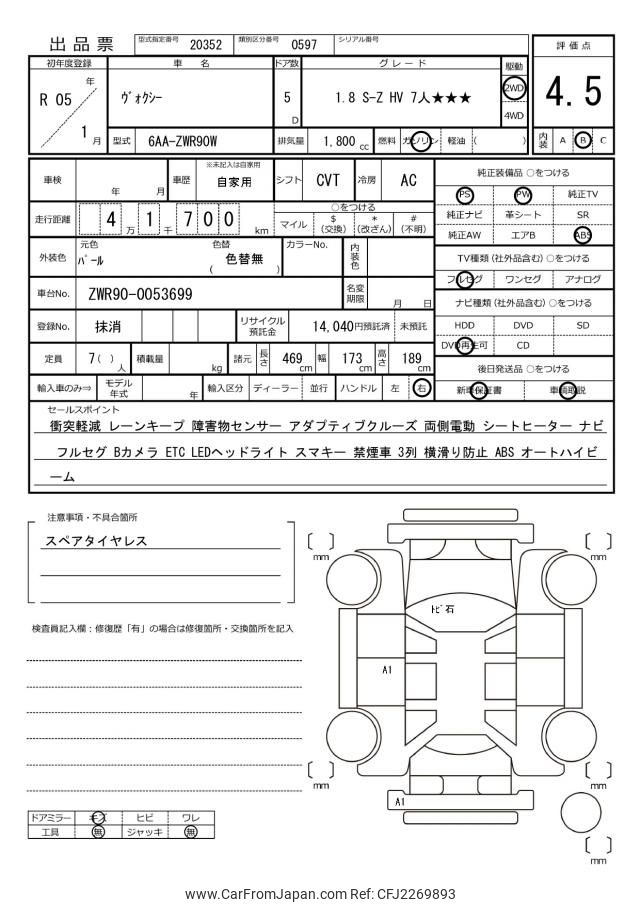 出品票 型式指定番号 20352 類別区分番号 0597 シリアル番号
評価点
4.5
内装 A B C
初年度登録 車名 ドア数 グレード 駆動
R 05 年 1 月
ヴォクシー 5 D 1.8 S-Z HV 7人★★★ 2WD 4WD
型式 6AA-ZWR90W 排気量 1,800 cc 燃料 ガソリン 軽油 ( )
車検 年 月 車歴 ※未記入は自家用 自家用 シフト CVT 冷房 AC
走行距離 4 万 1 千 7 0 0 km ○をつける
マイル $(交換) *(改ざん) #(不明)
外装色 元色 パール 色替 色替無 ( ) カラーNo. 内装色
車台No. ZWR90-0053699 名変期限 月 日
登録No. 抹消 リサイクル預託金 14,040円預託済 未預託
定員 7( )人 積載量 kg 諸元 長さ 469 cm 幅 173 cm 高さ 189 cm
輸入車のみ⇒ モデル年式 年 輸入区分 ディーラー 並行 ハンドル 左 右
純正装備品 ○をつける
PS PW 純正TV
純正ナビ 革シート SR
純正AW エアB ABS
TV種類(社外品含む) ○をつける
フルセグ ワンセグ アナログ
ナビ種類(社外品含む) ○をつける
HDD DVD SD
DVD再生可 CD
後日発送品 ○をつける
新車保証書 車輌取説
セールスポイント
衝突軽減 レーンキープ 障害物センサー アダプティブクルーズ 両側電動 シートヒーター ナビ
フルセグ Bカメラ ETC LEDヘッドライト スマキー 禁煙車 3列 横滑り防止 ABS オートハイビ
ーム
注意事項・不具合箇所
スペアタイヤレス
検査員記入欄：修復歴「有」の場合は修復箇所・交換箇所を記入
ドアミラー キズ ヒビ ワレ
工具 無 ジャッキ 無
mm
mm
トビ石
A1
mm
mm
A1
mm
www.CarFromJapan.com Ref: CFJ2269893